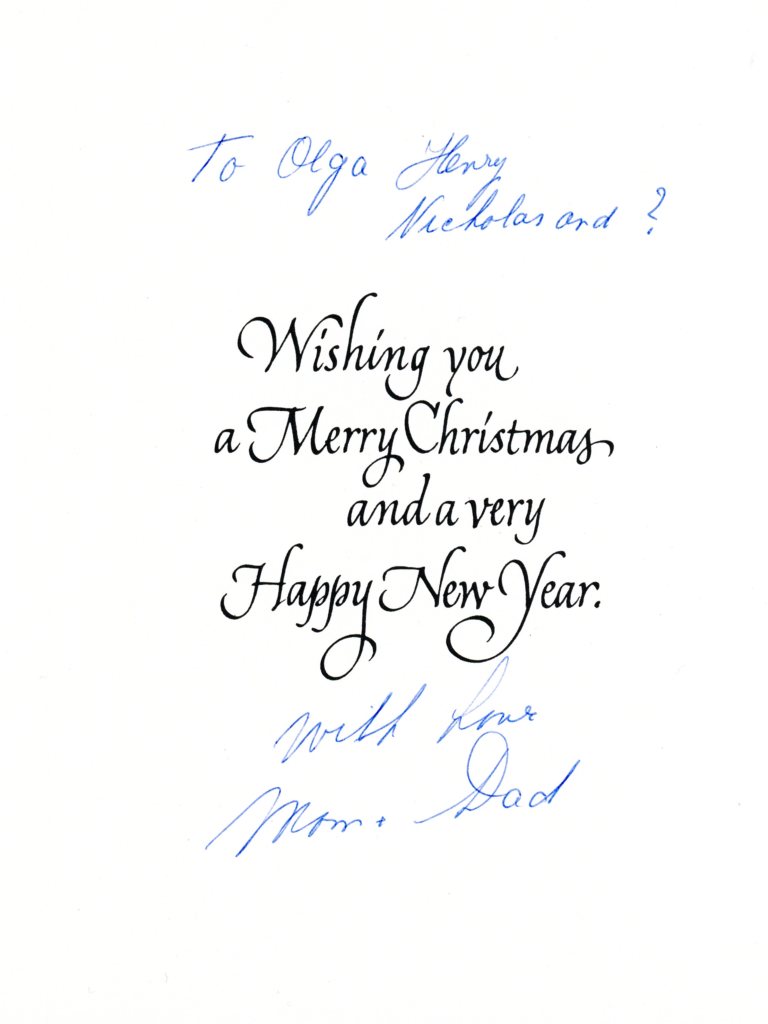 To Olga Henry
Nicholas and ?
Wishing you
a Merry Christmas
and a very
Happy New Year.
with Love
Mom + Dad